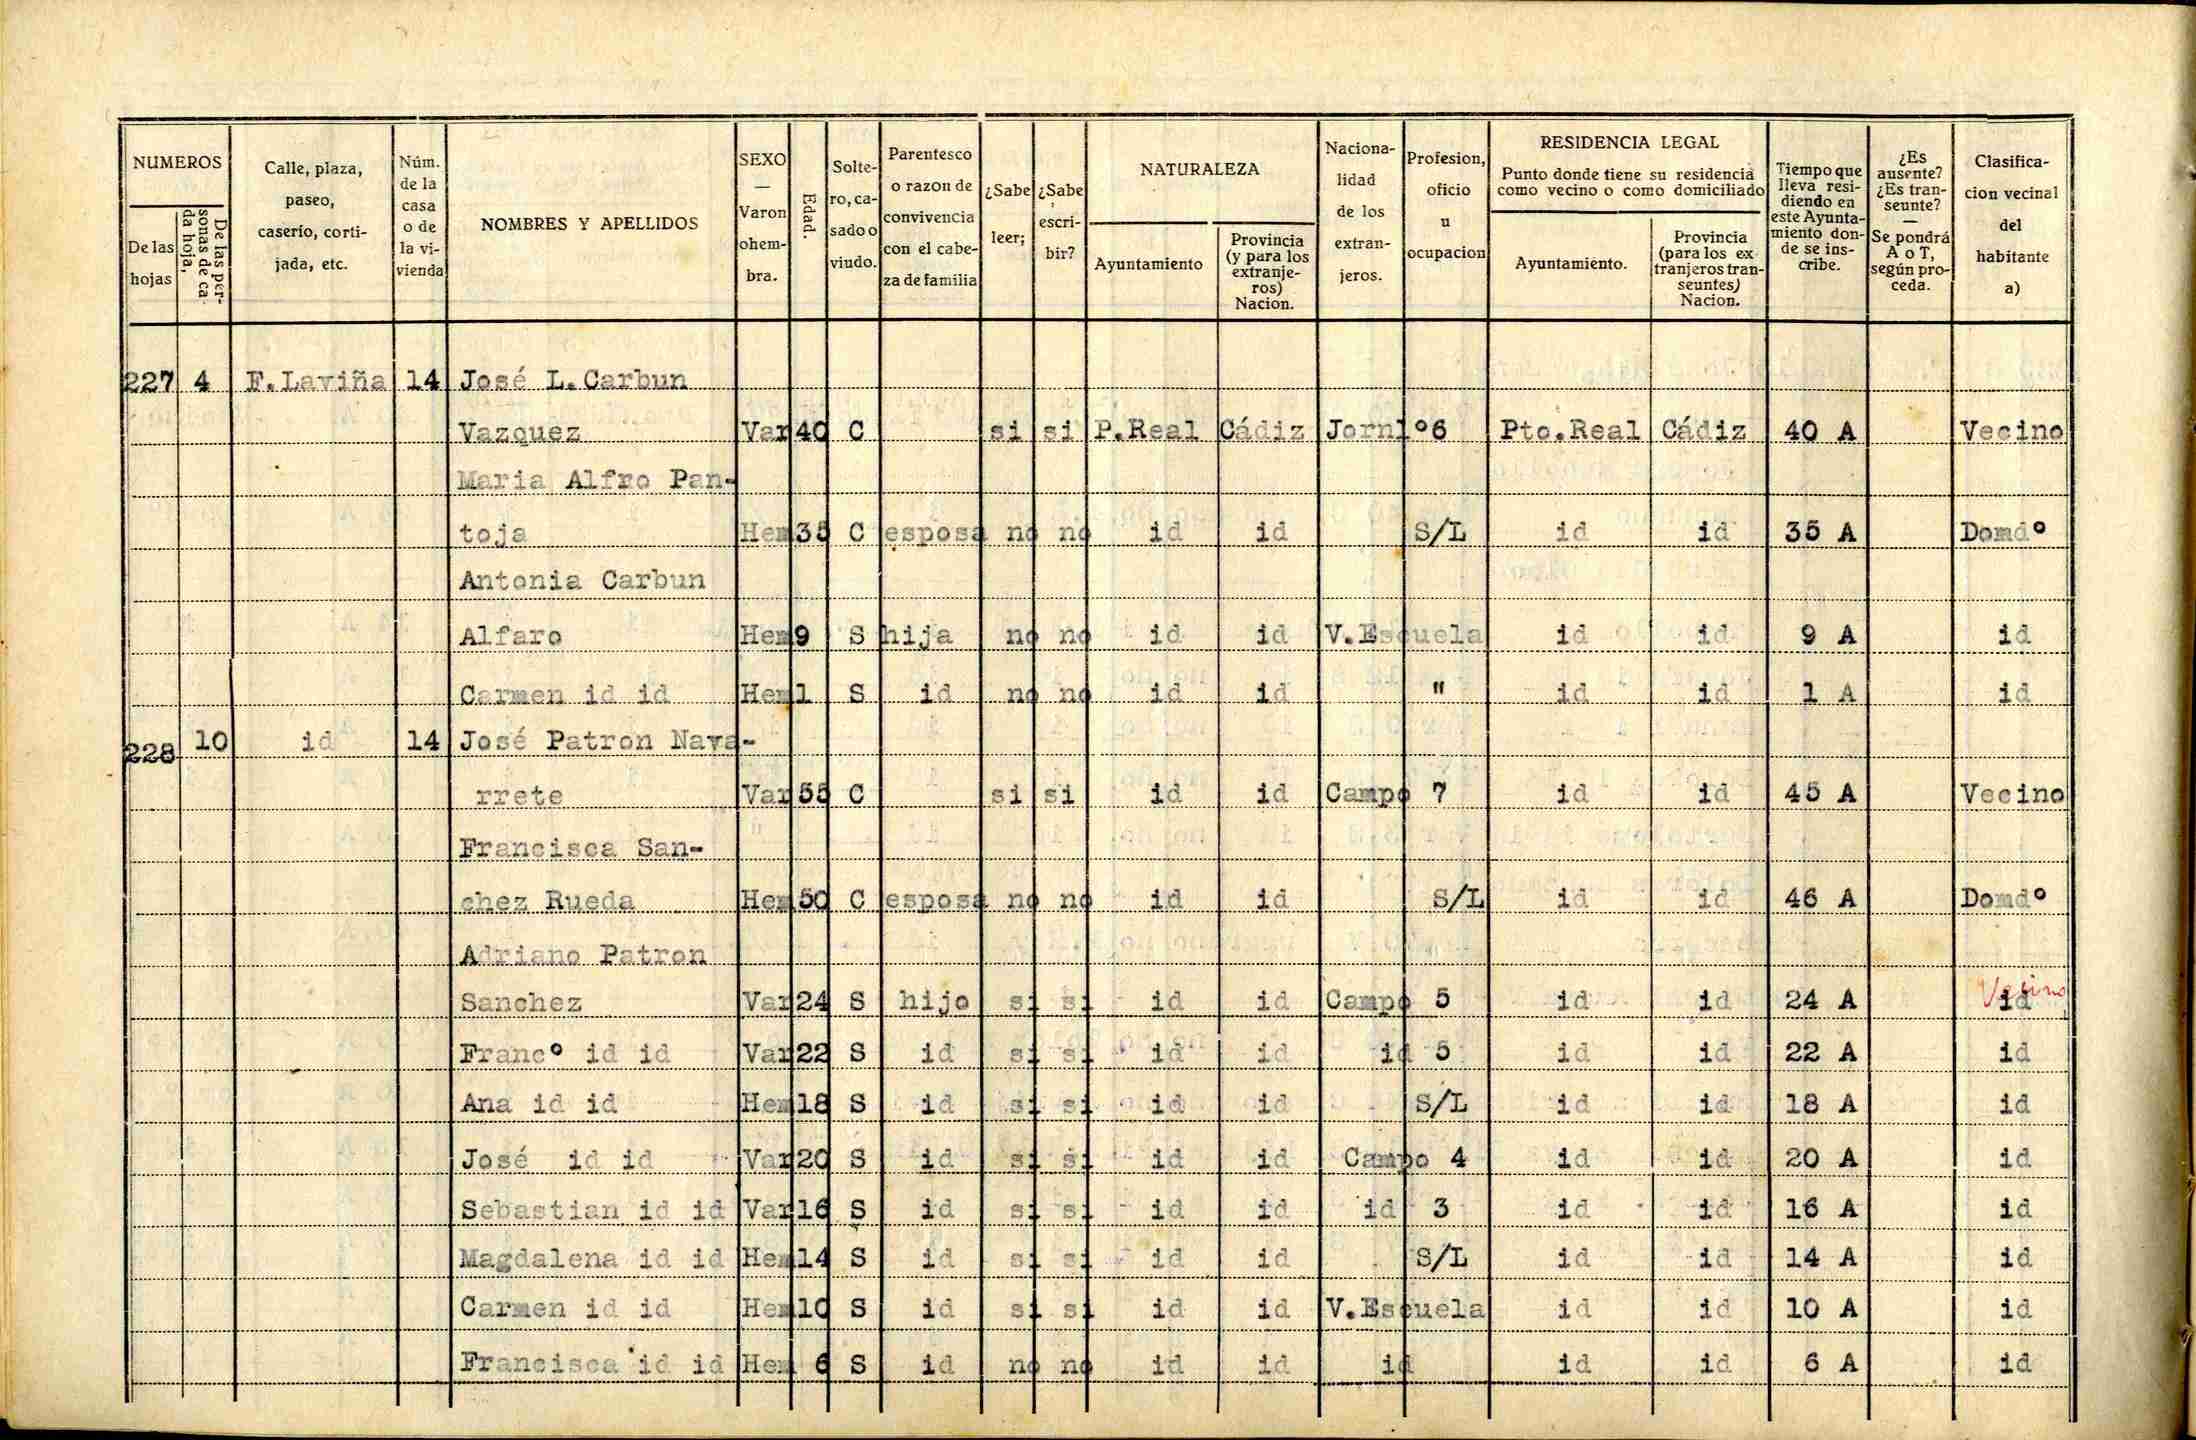 NUMEROS
De las hojas
De las personas de cada hoja,
Calle, plaza, paseo, caserío, cortijada, etc.
Núm. de la casa o de la vivienda
NOMBRES Y APELLIDOS
SEXO — Varon ohembra.
Edad.
Soltero, casado o viudo.
Parentesco o razon de convivencia con el cabeza de familia
¿Sabe leer;
¿Sabe escribir?
NATURALEZA
Ayuntamiento
Provincia (y para los extranjeros) Nacion.
Nacionalidad de los extranjeros.
Profesion, oficio u ocupacion
RESIDENCIA LEGAL
Punto donde tiene su residencia como vecino o como domiciliado
Ayuntamiento.
Provincia (para los extranjeros transeuntes) Nacion.
Tiempo que lleva residiendo en este Ayuntamiento donde se inscribe.
¿Es ausente? ¿Es transeunte? — Se pondrá A o T, según proceda.
Clasificacion vecinal del habitante a)
227 4 F.Laviña 14 José L.Carbun
Vazquez Var 40 C si si P.Real Cádiz Jornlº6 Pto.Real Cádiz 40 A Vecino
Maria Alfro Pan-
toja Hem 35 C esposa no no id id S/L id id 35 A Domdº
Antonia Carbun
Alfaro Hem 9 S hija no no id id V.Escuela id id 9 A id
Carmen id id Hem 1 S id no no id id " id id 1 A id
228 10 id 14 José Patron Nava-
rrete Var 55 C si si id id Campo 7 id id 45 A Vecino
Francisca San-
chez Rueda Hem 50 C esposa no no id id S/L id id 46 A Domdº
Adriano Patron
Sanchez Var 24 S hijo si si id id Campo 5 id id 24 A id Vecino
Francº id id Var 22 S id si si id id id 5 id id 22 A id
Ana id id Hem 18 S id si si id id S/L id id 18 A id
José id id Var 20 S id si si id id Campo 4 id id 20 A id
Sebastian id id Var 16 S id si si id id id 3 id id 16 A id
Magdalena id id Hem 14 S id si si id id S/L id id 14 A id
Carmen id id Hem 10 S id si si id id V.Escuela id id 10 A id
Francisca id id Hem 6 S id no no id id id id id 6 A id